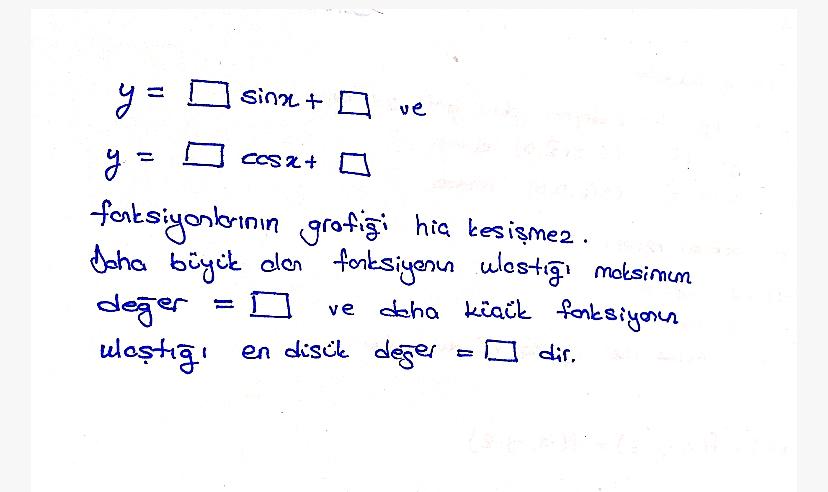 y = □ sinx + □ ve
y = □ cosx + □
fonksiyonlarının grafiği hiç kesişmez.
Daha büyük olan fonksiyonun ulaştığı maksimum
değer = □ ve daha küçük fonksiyonun
ulaştığı en düşük değer = □ dir.